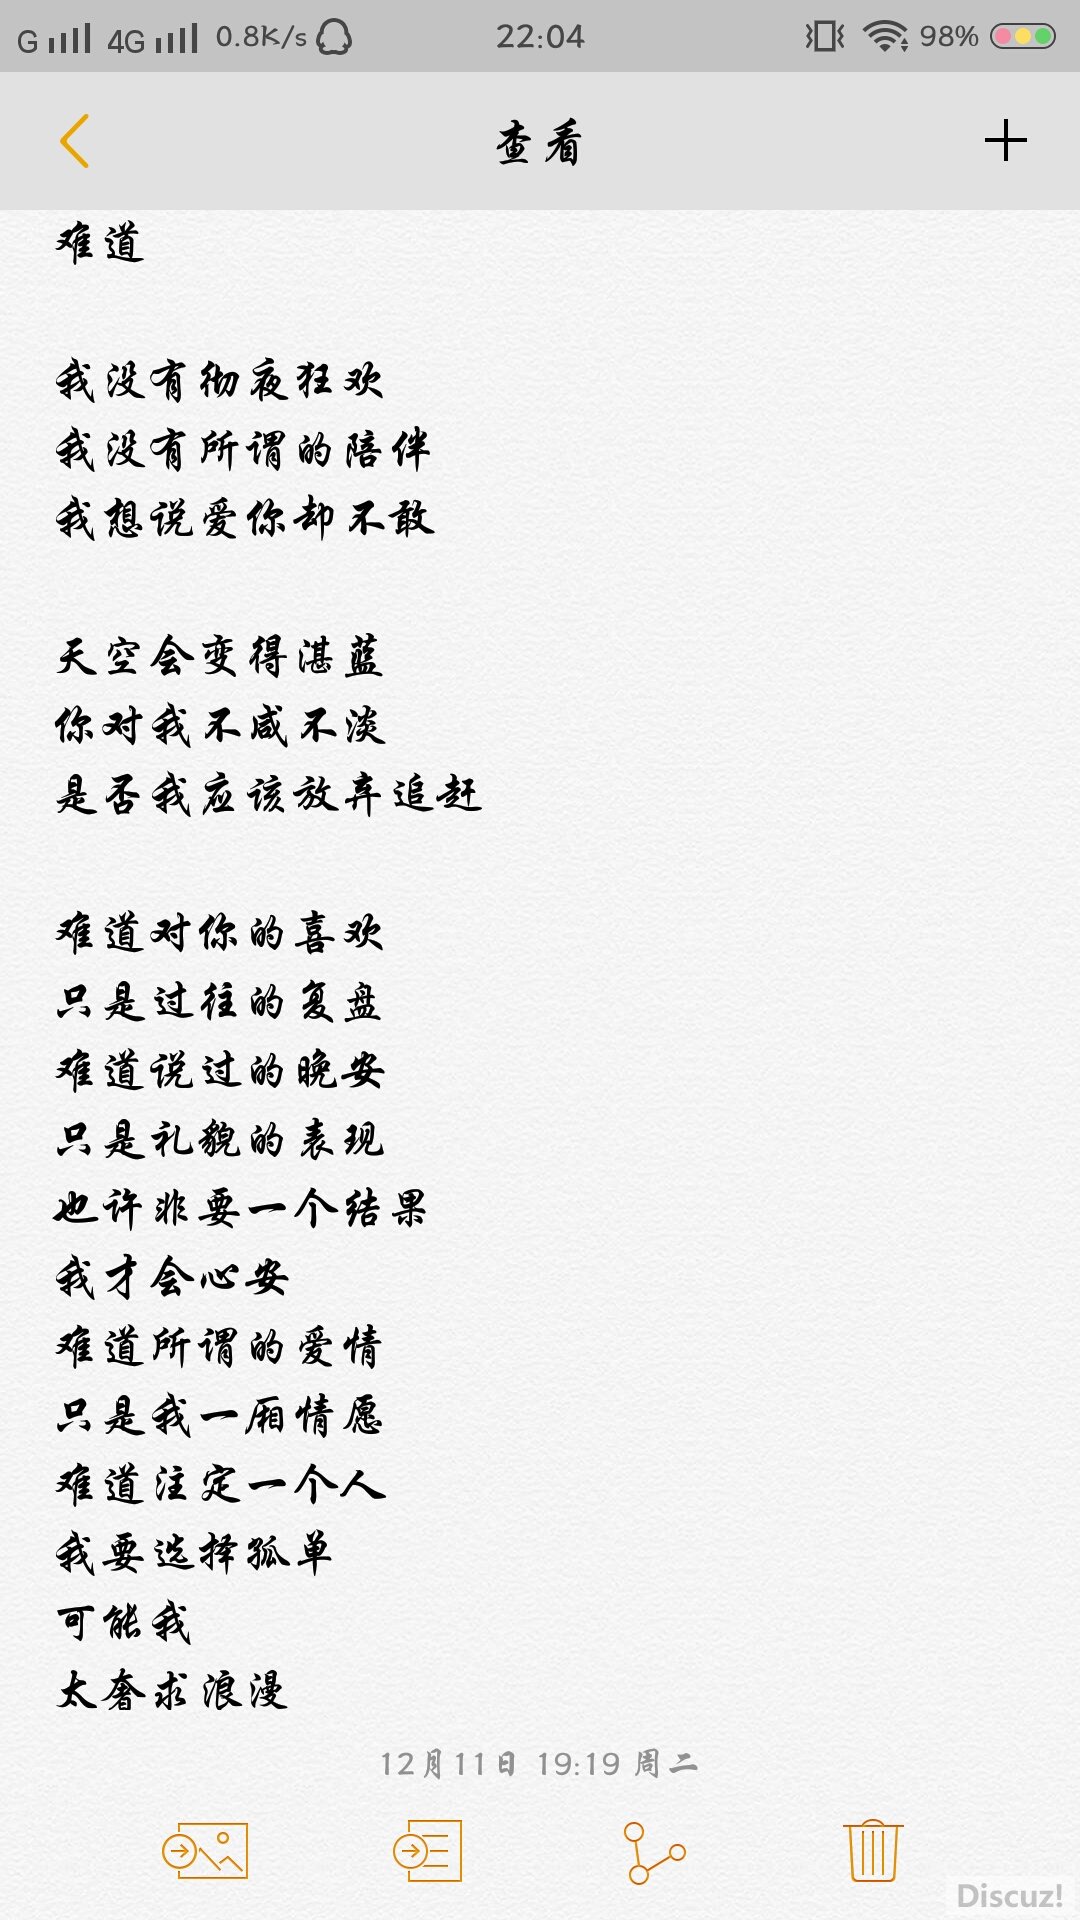 G 4G 0.8K/s 22:04 98%
查看
难道
我没有彻夜狂欢
我没有所谓的陪伴
我想说爱你却不敢
天空会变得湛蓝
你对我不咸不淡
是否我应该放弃追赶
难道对你的喜欢
只是过往的复盘
难道说过的晚安
只是礼貌的表现
也许非要一个结果
我才会心安
难道所谓的爱情
只是我一厢情愿
难道注定一个人
我要选择孤单
可能我
太奢求浪漫
12月11日 19:19 周二
Discuz!